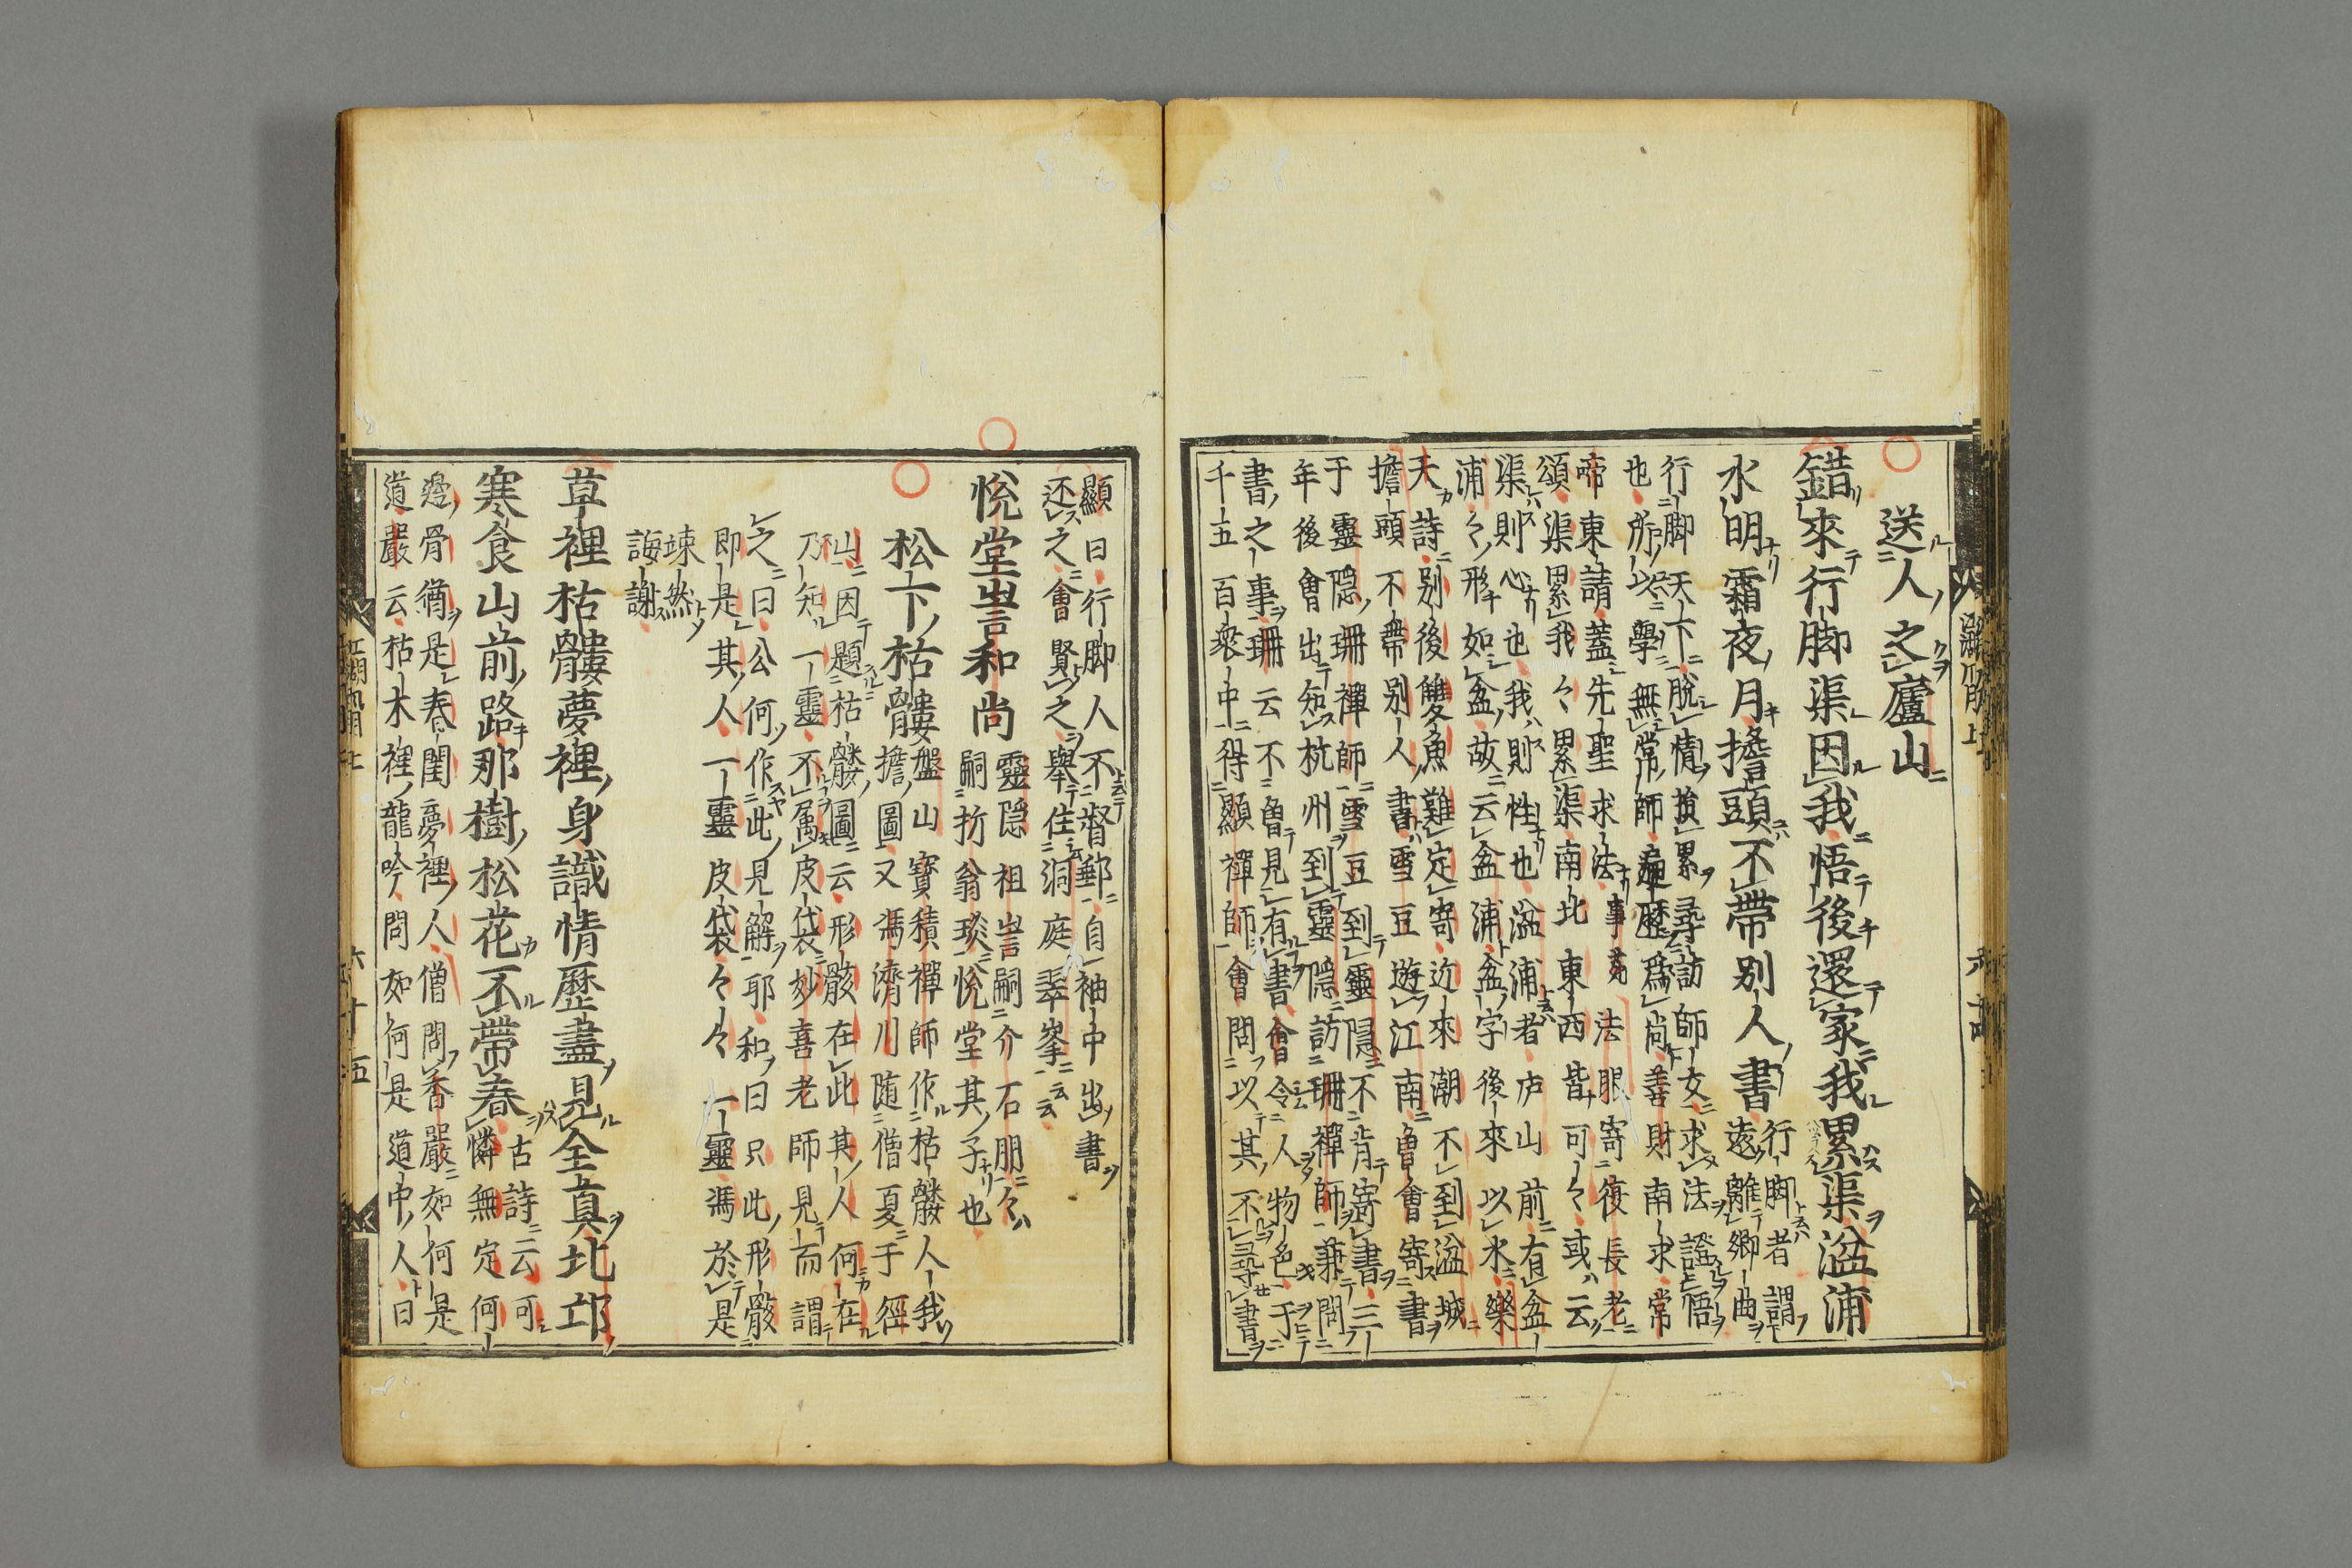 送人之廬山
錯來行脚渠因我悟後還家我累渠湓浦
水明霜夜月擔頭不帶別人書
行脚者謂
遠離鄉曲
行脚天下脫情損累尋訪師友求法證悟
也所以學無常師遍歷爲尚善財南求常
啼東請蓋先聖求法
法眼寄復長老
頌渠累我々累渠南北東西皆可々或云
渠則心也我則性也湓浦者庐山前有盆
浦々形如盆故云盆浦盆字後來以水樂
天詩別後雙魚難定寄近來潮不到湓城
擔頭不帶別人書雪豆遊江南曾會寄書
于靈隠珊禪師雪豆到靈隠不肯寄書三
年後會出知杭州到靈隠訪珊禪師兼問
書之事珊云不曾見有書會令人物色于
千五百衆中得顯禪師會問以其不尋書
顯曰行脚人不督郵自袖中出書
还之會賢之舉住洞庭翠峯云云
悅堂誾和尚
靈隠祖誾嗣介石朋々
嗣折翁琰悅堂其子也
松下枯髏
盤山寶積禪師作枯髏人我
擔圖又馮濟川随僧夏于徑
山因題枯髏圖云形骸在此其人何在
乃知一靈不属皮袋妙喜老師見而謂
之曰公何作此見解耶和曰只此形骸
即是其人一靈皮袋々々一靈馮於是
竦然
誨謝
草裡枯髏夢裡身識情歷盡見全真北邙
寒食山前路那樹松花不帶春
古詩云可
憐無定何
邊骨猶是春閨夢裡人僧問香嚴如何是
道嚴云枯木裡龍吟問如何是道中人曰